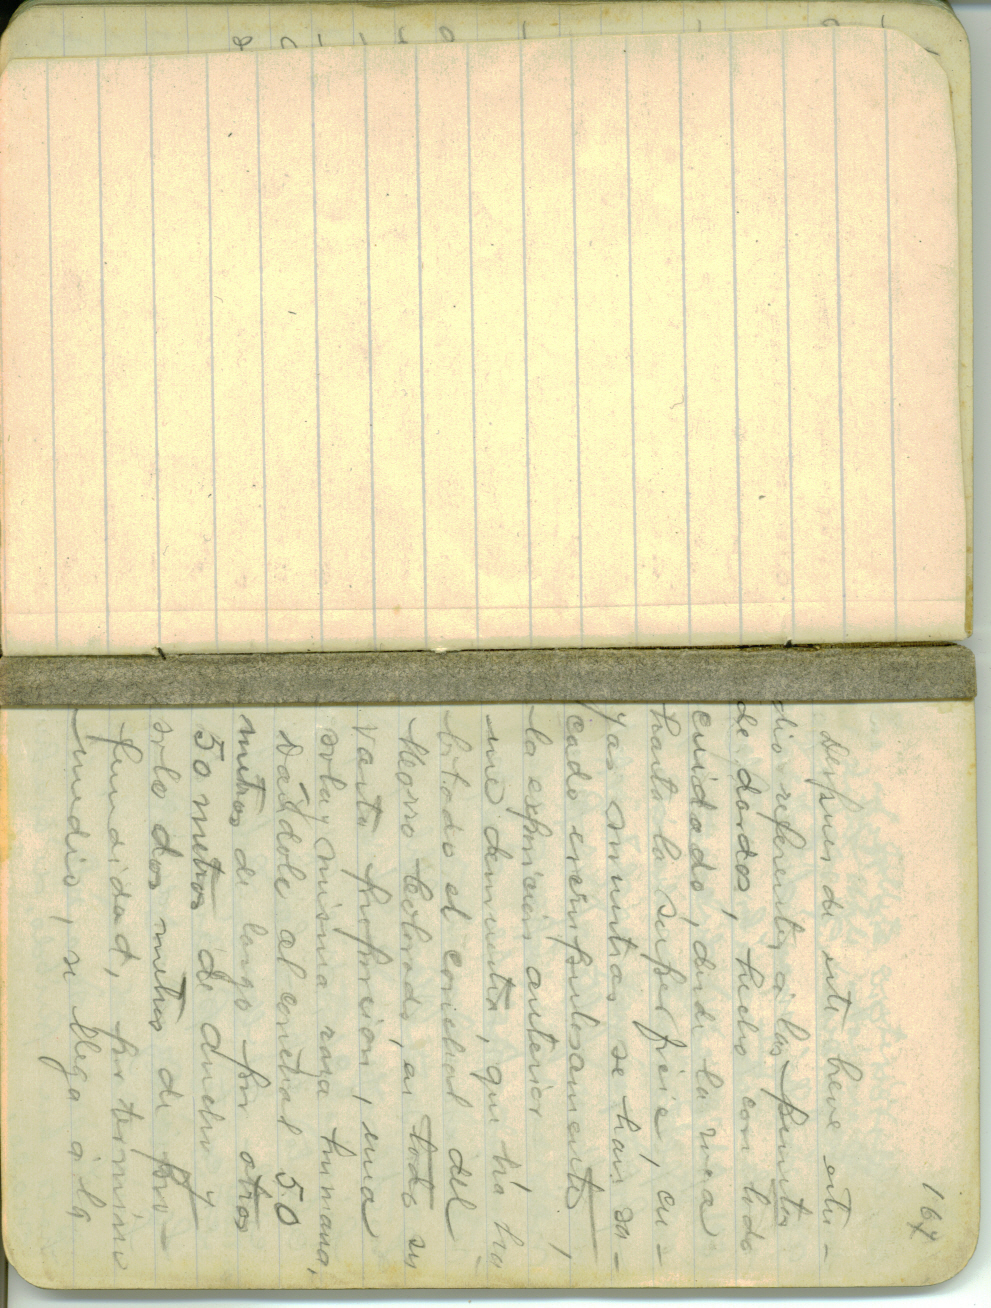 167
Despues de este breve estu-
dio referentes a las puntas
de dardos, hecho con todo
cuidado, desde la roca
hasta la superficie, cu-
yas muestras se han sa-
cado escrupulosamente,
la esposicion anterior
me demuestra, que ha ha
bitado el conchal del
Morro Colorado, en toda su
vasta proporcion, una
sola y misma raza humana,
Dandole al conchal 50
metros de largo por otros
50 metros de ancho y
solo dos metros de pro-
fundidad, por termino
medio, se llega á la